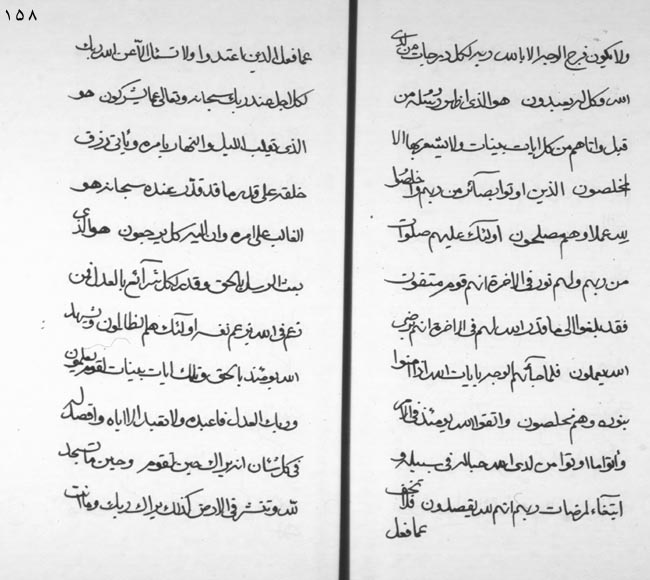 ١٥٨
ولا يكون فرج الوحيد الا باس ربه لكل درجات من لدى
اس وكل له يعبدون هو الذى ارسل رسله من
قبل واتاهم من كل ايات بينات ولا يشعر بها الا
المخلصون الذين اوتوا بصائر من ربهم واخلصوا
لله عملا وهم مصلحون اولئك عليهم صلوات
من ربهم ولهم نور فى الاخرة انهم قوم متقون
فقد بلغوا الى ما قدر اس لهم فى الاخرة انهم
اس يعملون فلما جائهم الوحيد بايات اس اذا امنوا
بنوره وهم مخلصون واتقوا اس يومئذ فى
واتوا ما اوتوا من لدى اس حبا لله فى سبيله و
ابتغاء لمرضات ربهم انهم لله يقصدون فلا تخف
عما فعل
عما فعل الذين اعتدوا ولا تسئل الا عن اس ربك
لكل اجل عند ربك سبحانه وتعالى عما يشركون هو
الذى يقلب الليل والنهار بامره وياتى رزق
خلقه على قدر ما قد قدر عنده سبحانه هو
الغالب على امره وان اليه كل يرجعون هو الذى
بعث الرسل بالحق وقدر لكل شرائع بالعدل فمن
نزع فى اس بزعم نفسه اولئك هم الظالمون ويشهد
اس يومئذ بالحق وتلك ايات بينات لقوم يعلمون
وربك العدل فاعبده ولا تعبد الا اياه واقصد اليه
فى كل شان انه يراك حين تقوم وحين ما تسجد
لله وتنشر فى الارض كذلك يراك ربك وما انت